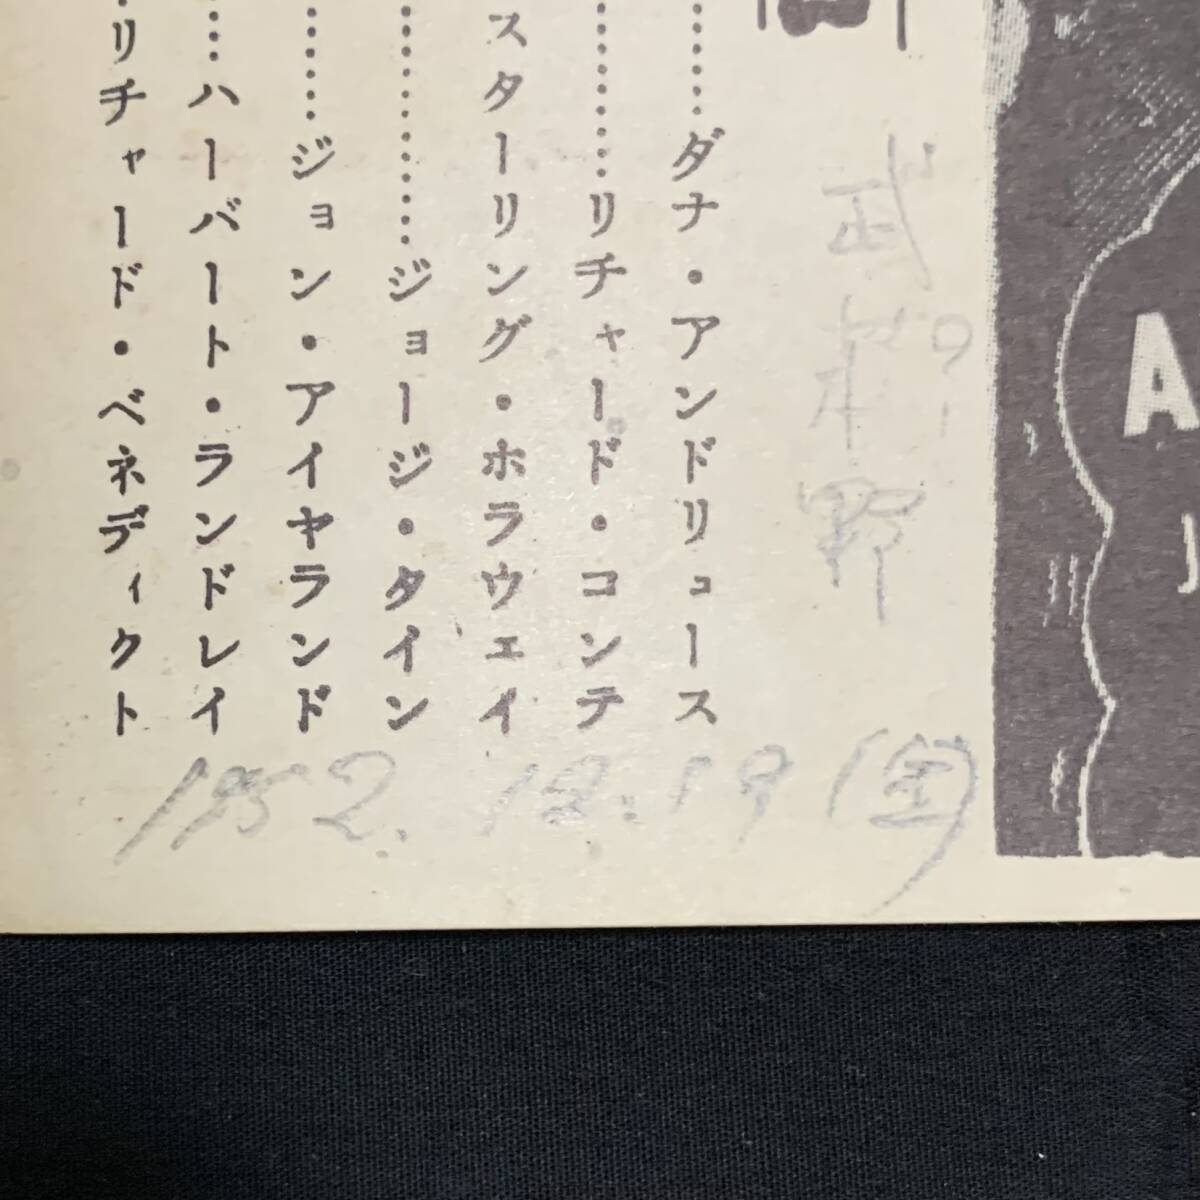 ダナ・アンドリュース
リチャード・コンテ
スターリング・ホラウェイ
ジョージ・タイン
ジョン・アイヤランド
ハーバート・ランドレイ
リチャード・ベネディクト
1952.12.19(金)
A
J